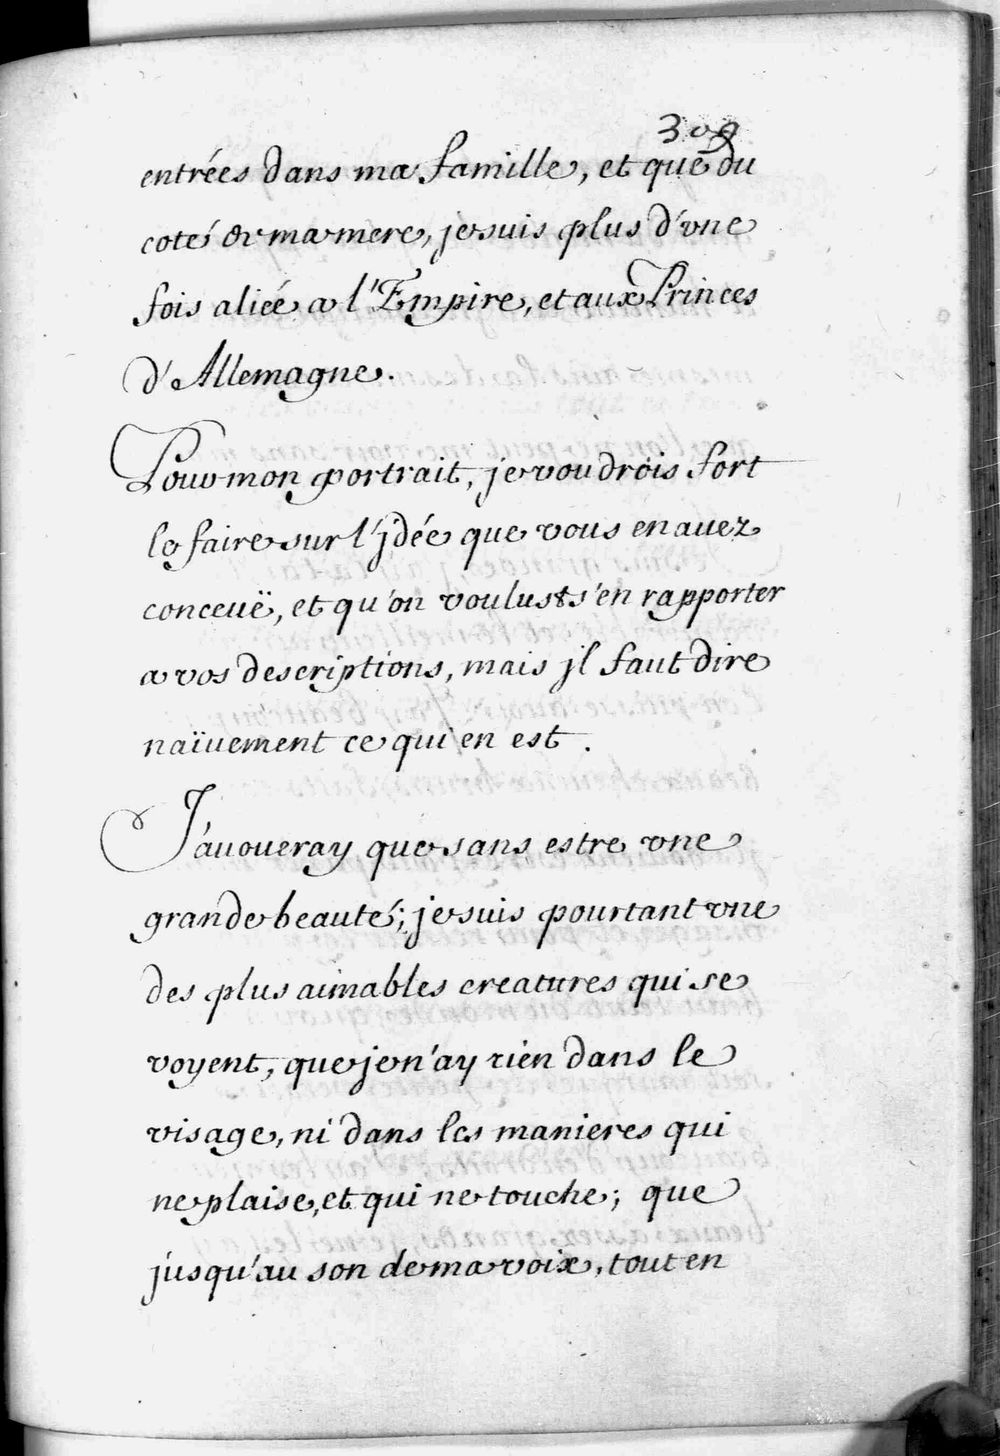 309
entrées dans ma famille, et que du
coté de ma mere, je suis plus d'vne
fois aliée a l'Empire, et aux Princes
d'Allemagne.
Pour mon portrait, je voudrois fort
le faire sur l'jdée que vous en auez
conceuë, et qu'on voulust s'en rapporter
a vos descriptions, mais jl faut dire
naïuement ce qui en est.
J'auoueray que sans estre vne
grande beauté; je suis pourtant vne
des plus aimables creatures qui se
voyent, que je n'ay rien dans le
visage, ni dans les manieres qui
ne plaise, et qui ne touche; que
jusqu'au son de ma voix, tout en